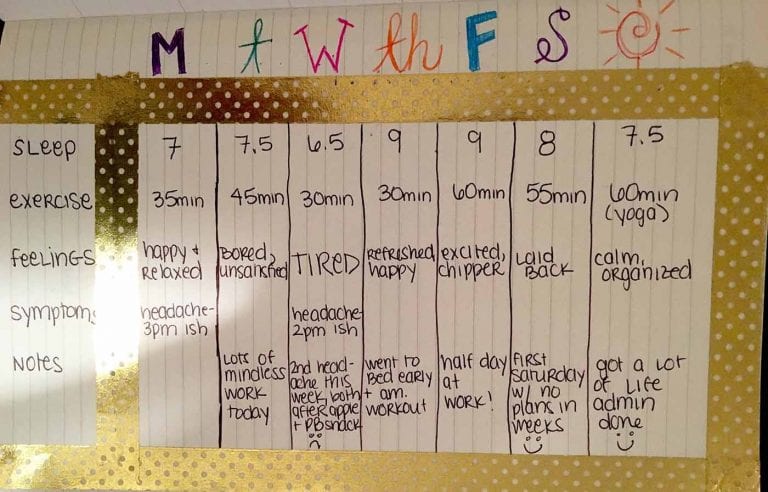 M t W th F S
SLEEP 7 7.5 6.5 9 9 8 7.5
exercise 35min 45min 30min 30min 60min 55min 60min
(yoga)
feelings
happy +
Relaxed
Bored,
unsatisfied
TIRED
Refreshed,
happy
excited,
chipper
Laid
Back
calm,
organized
symptoms
headache-
3pm ish
headache-
2pm ish
Notes
Lots of
mindless
work
today
2nd head-
ache this
week, both
after apple
+ PB snack
went to
Bed early
+ am.
workout
half day
at
work!
first
Saturday
w/ no
plans in
weeks
got a lot
of life
admin
done